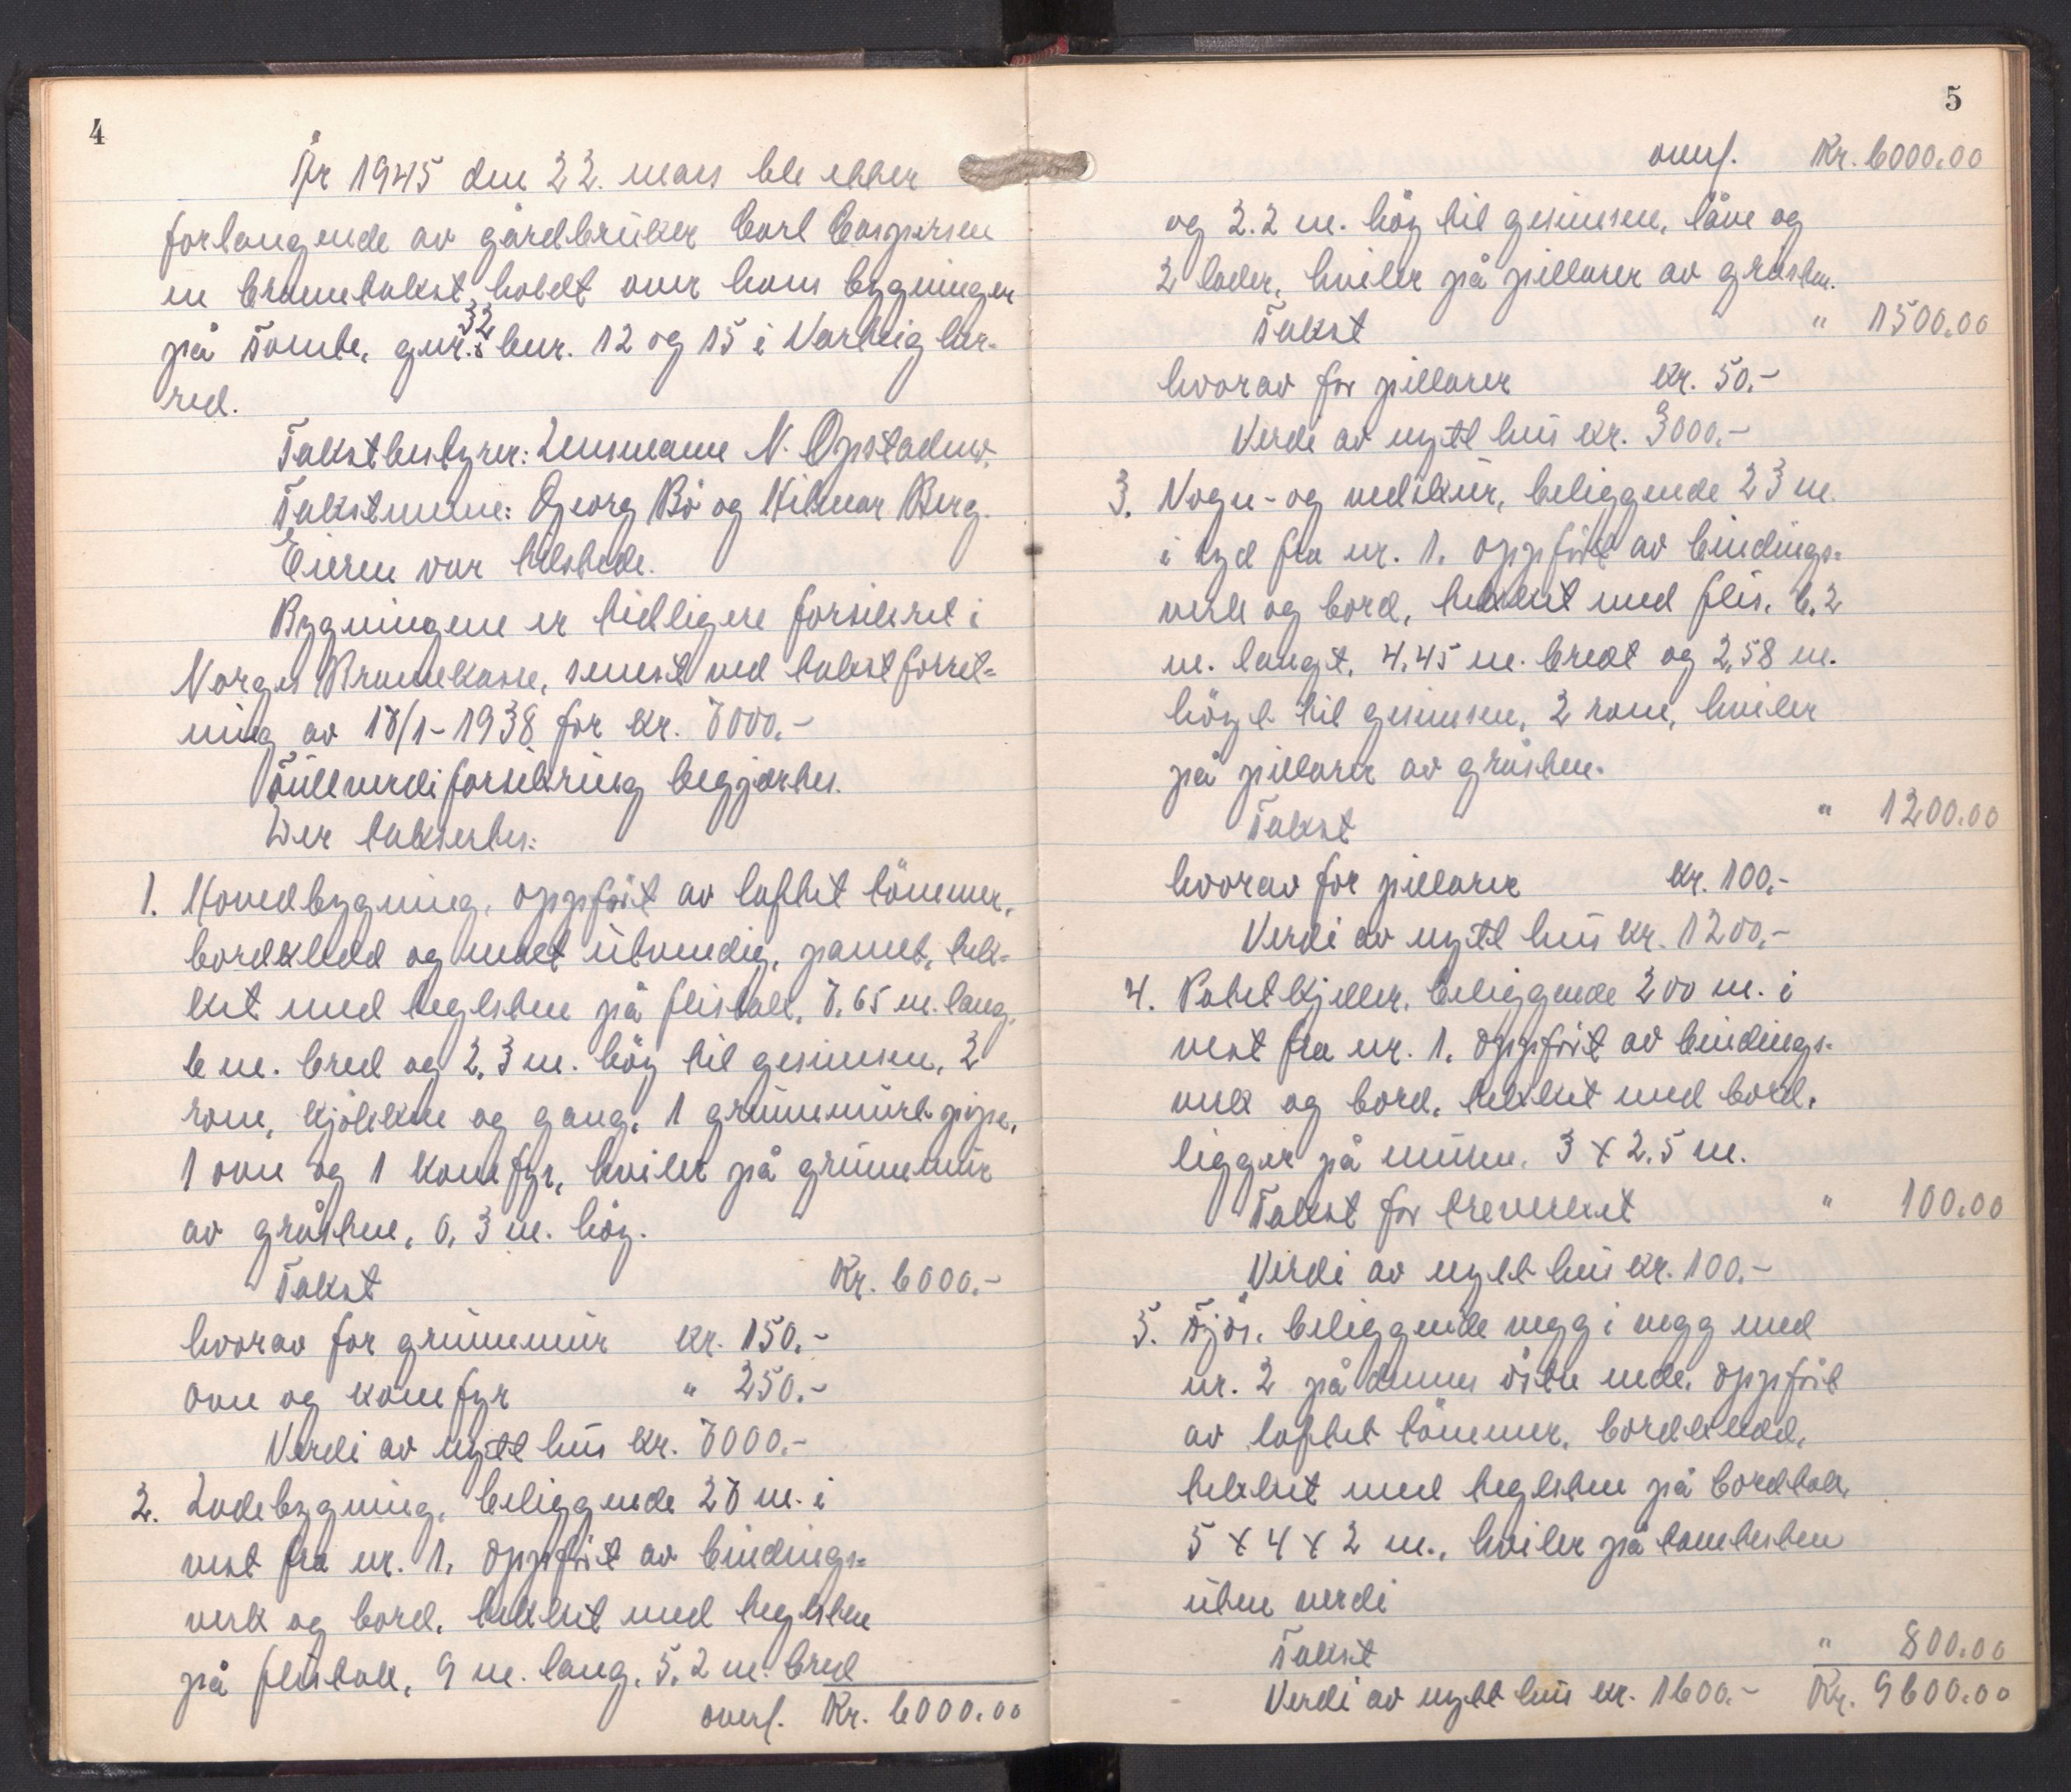 4
År 1945 den 22. mars ble etter
forlangende av gårdbruker Carl Caspersen
en branntakst holdt over hans bygninger
på Tombe, gnr. 32 bnr. 12 og 15 i Varteig her-
red.
Takstbestyrer: Lensmann N. Opstad
Takstmenn: Georg Bö og Hilmar Berg.
Eieren var tilstede.
Bygningene er tidligere forsikret i
Norges Brannkasse, senest ved takstforret-
ning av 18/1-1938 for kr. 7000.-
Fullverdiforsikring begjærtes.
Der taksertes:
1. Hovedbygning, oppfört av laftet tömmer,
bordkledd og malt utvendig, panelt, tek-
ket med teglsten på flistak, 7.65 m. lang,
6 m. bred og 2.3 m. höy til gesimsen, 2
rom, kjökken og gang, 1 grunnmurt pipe,
1 ovn og 1 komfyr, hviler på grunnmur
av gråsten, 0,3 m. höy.
Takst Kr. 6000.-
hvorav for grunnmur kr. 150.-
ovn og komfyr " 250.-
Verdi av nytt hus kr. 7000.-
2. Ladebygning, beliggende 27 m. i
vest fra nr. 1, oppfört av bindings-
verk og bord, tekket med teglsten
på flistak, 9 m. lang, 5.2 m. bred
overf. Kr. 6000.00
5
overf. Kr. 6000.00
og 2.2 m. höy til gesimsen, låve og
2 lader, hviler på pillarer av gråsten.
Takst " 1500.00
hvorav for pillarer kr. 50.-
Verdi av nytt hus kr. 3000.-
3. Vogn- og vedskur, beliggende 23 m.
i syd fra nr. 1, oppfört av bindings-
verk og bord, tekket med flis, 6.2
m. langt, 4.45 m. bredt og 2,58 m.
höyt til gesimsen, 2 rom, hviler
på pillarer av gråsten.
Takst " 1200.00
hvorav for pillarer kr. 100.-
Verdi av nytt hus kr. 1200.-
4. Potetkjeller, beliggende 200 m. i
vest fra nr. 1, oppfört av bindings-
verk og bord, tekket med bord,
ligger på muren, 3 x 2.5 m.
Takst for treverket " 100.00
Verdi av nytt hus kr. 100.-
5. Fjös, beliggende vegg i vegg med
nr. 2 på dennes östre ende, oppfört
av laftet tömmer, bordkledd,
tekket med teglsten på bordtak,
5 x 4 x 2 m., hviler på tomtesten
uten verdi
Takst " 800.00
Verdi av nytt hus kr. 1600.- Kr. 9600.00